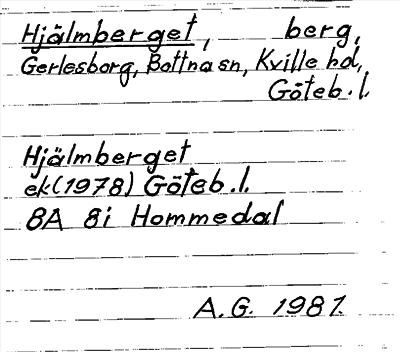 Hjälmberget, berg,
Gerlesborg, Bottna sn, Kville hd,
Göteb. l.
Hjälmberget
ek (1978) Göteb. l.
8A 8i Hommedal
A. G. 1981.